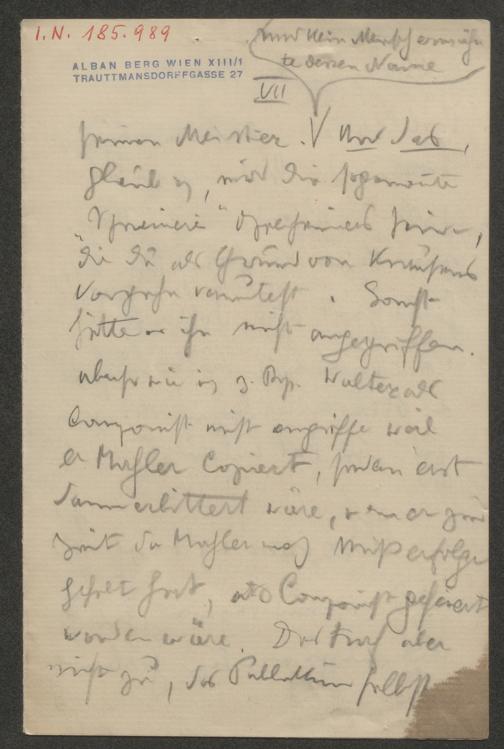 I.N. 185.989
und kein Mensch erwähn
te dessen Name
ALBAN BERG WIEN XIII/1
TRAUTTMANSDORFFGASSE 27
VII
seinen Meister. Und das,
glaub ich, wird die sogenannte
"Gemeinheit" sein,
die Du als Grund von Kraus
Vorgehn vermutest. Sonst
hätte er ihn nicht angegriffen.
ebenso wie ich z. Bsp. Walter als
Componist nicht angriffe weil
er Mahler Copiert, sondern erst
dann erbittert wäre, wenn er zur
Zeit da Mahler noch Mißerfolge
gehabt hat, als Componist gefeiert
worden wäre. Das traf aber
nicht zu, das selbst